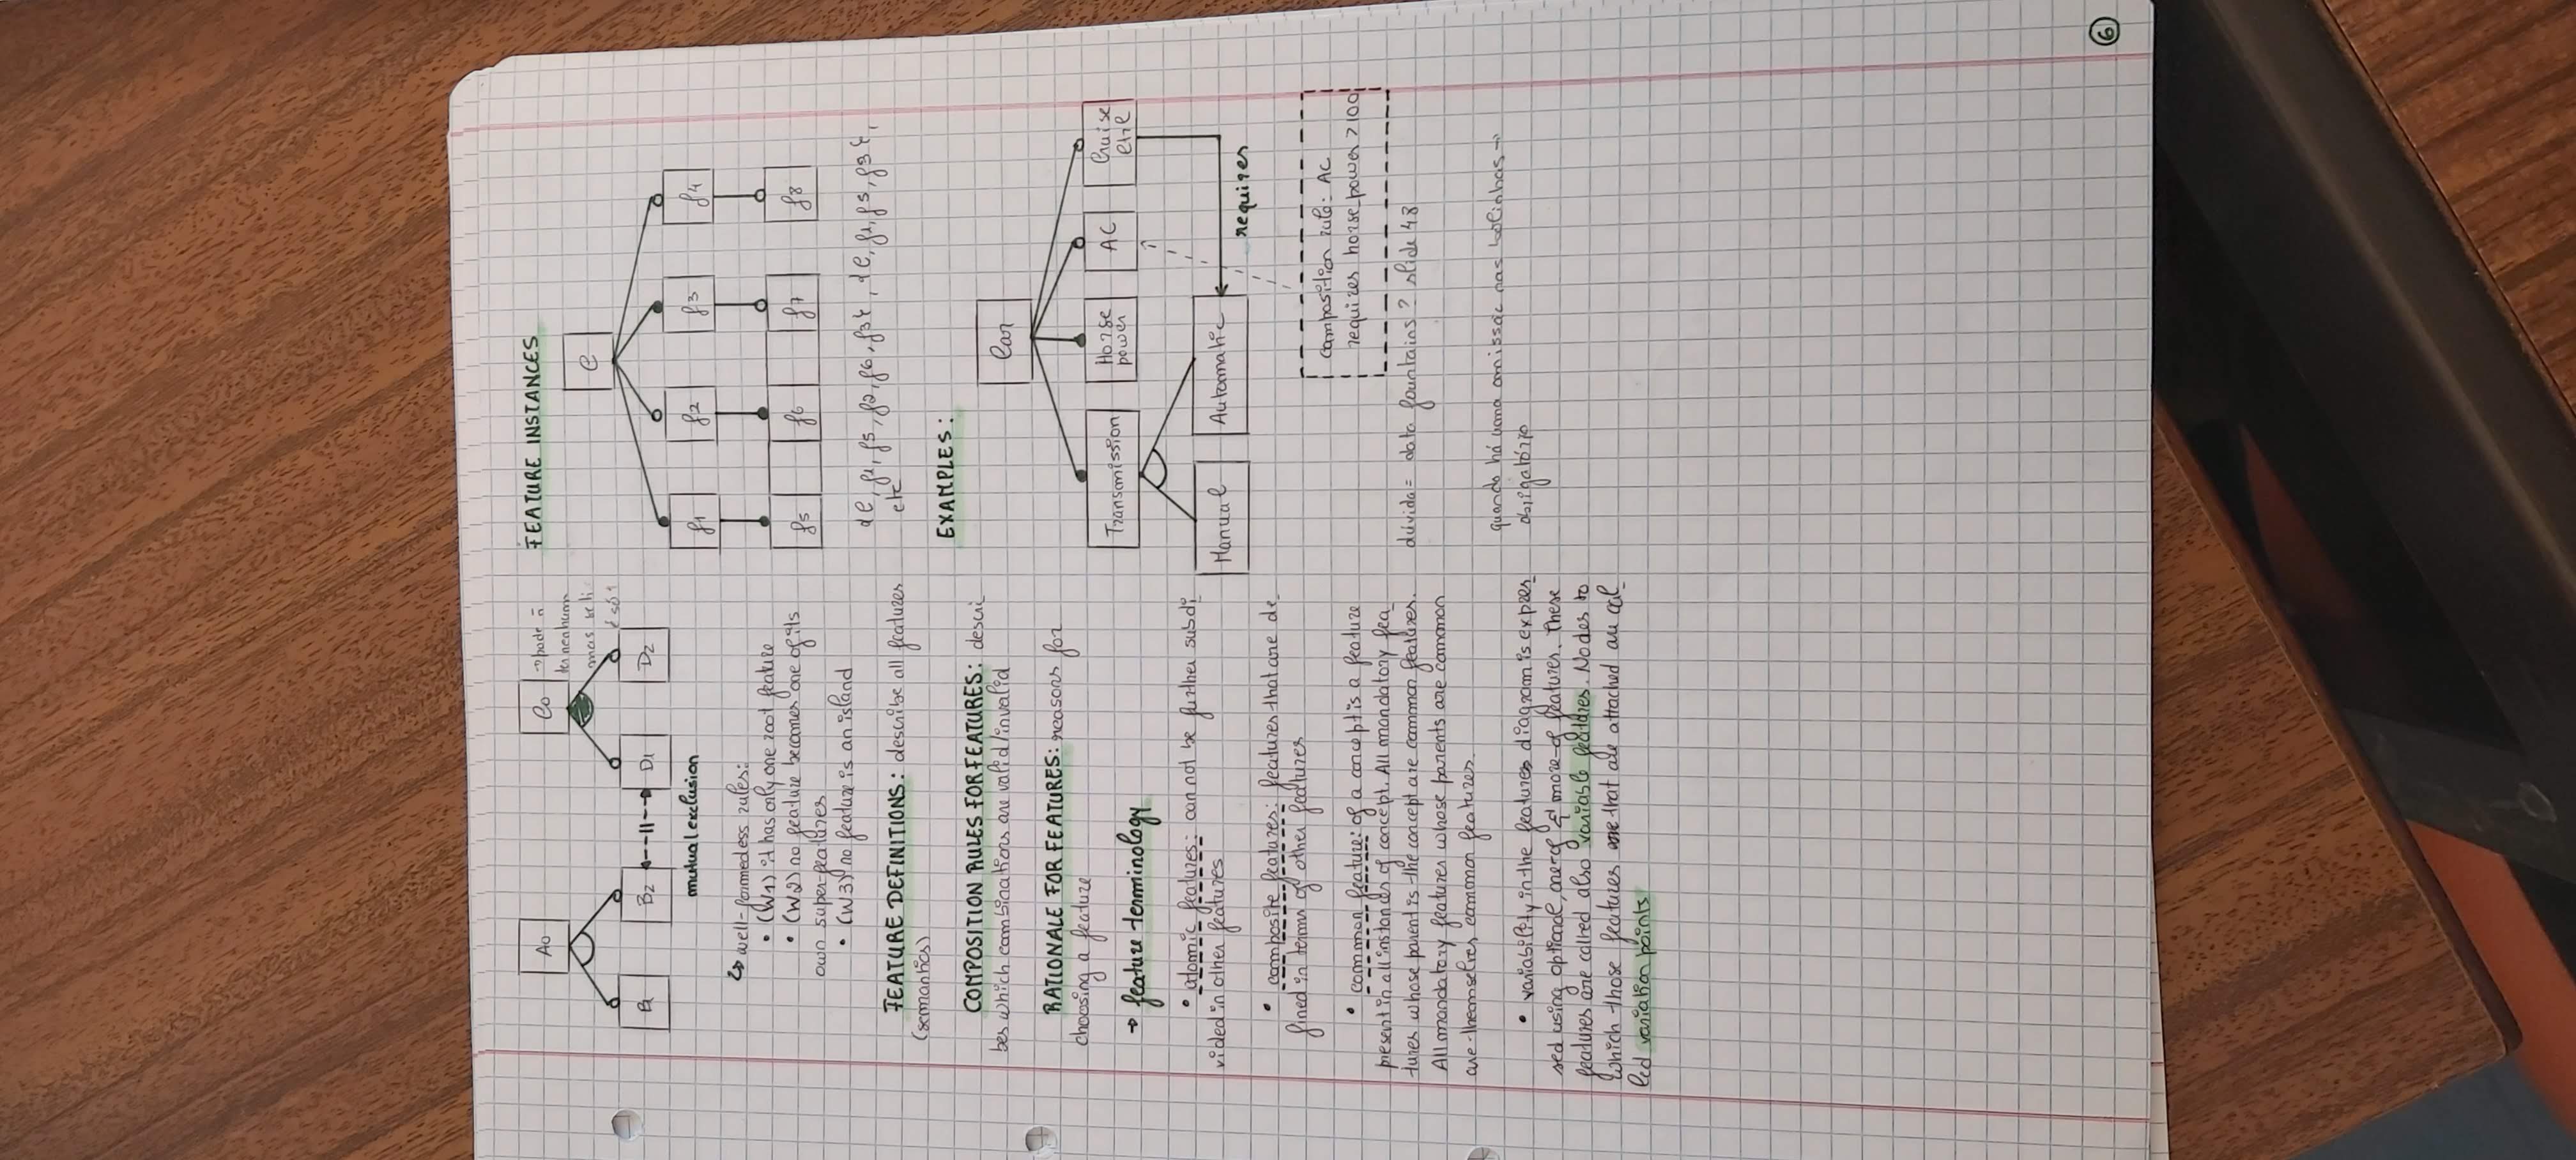 A0
B1
B2
mutual exclusion
C0
D1
D2
→ pode ñ
ter nenhum
mas se ti
é só 1
↳ well-formedess rules:
• (W1) it has only one root feature
• (W2) no feature becomes one of its
own super-features
• (W3) no feature is an island
FEATURE DEFINITIONS: describe all features
(semantics)
COMPOSITION RULES FOR FEATURES: descri
bes which combinations are valid/invalid
RATIONALE FOR FEATURES: reasons for
choosing a feature
→ feature terminology
• atomic features: can not be further subdi
vided in other features
• composite features: features that are de
fined in terms of other features
• common feature: of a concept is a feature
present in all instances of concept. All mandatory fea
tures whose parent is the concept are common features.
All mandatory features whose parents are common
are themselves common features.
• variability in the features diagram is expres
sed using optional, one-of & more-of features. These
features are called also variable features. Nodes to
which those features that are attached au cal
led variation points
FEATURE INSTANCES
C
f1
f2
f3
f4
f5
f6
f7
f8
{C, f1, f5, f2, f6, f3}, {C, f1, f5, f3},
etc
EXAMPLES:
Car
Transmission
Horse
power
AC
Cruise
ctrl
Manual
Automatic
requires
composition rule: AC
requires horse power > 100
dúvida = data fountains? slide 48
quando há uma omissão nas bolinhas →
obrigatório
6